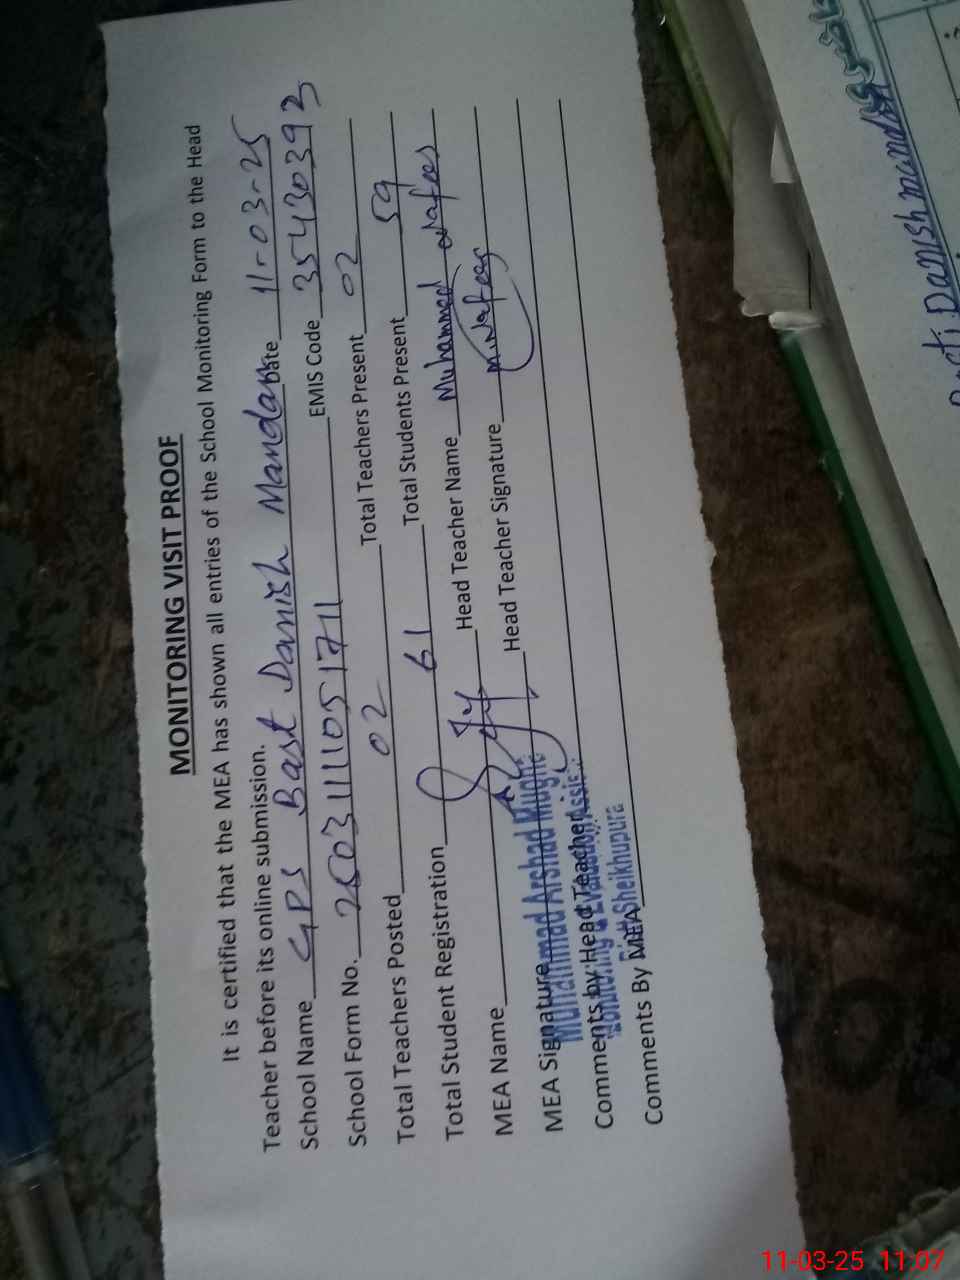 MONITORING VISIT PROOF
It is certified that the MEA has shown all entries of the School Monitoring Form to the Head
Teacher before its online submission.
School Name GPS Bast Danish Mandar Date 11-03-25
School Form No. 25031111051711 EMIS Code 35430393
Total Teachers Posted 02 Total Teachers Present 02
Total Student Registration 61 Total Students Present 59
MEA Name Head Teacher Name Muhammad Nafees
MEA Signature Head Teacher Signature M.Nafees
Muhammad Arshad Mughal
Comments by Head Teacher
Monitoring & Evaluation Assis
Distt Sheikhupura
Comments By MEA
Danish mandar
11-03-25 11:07